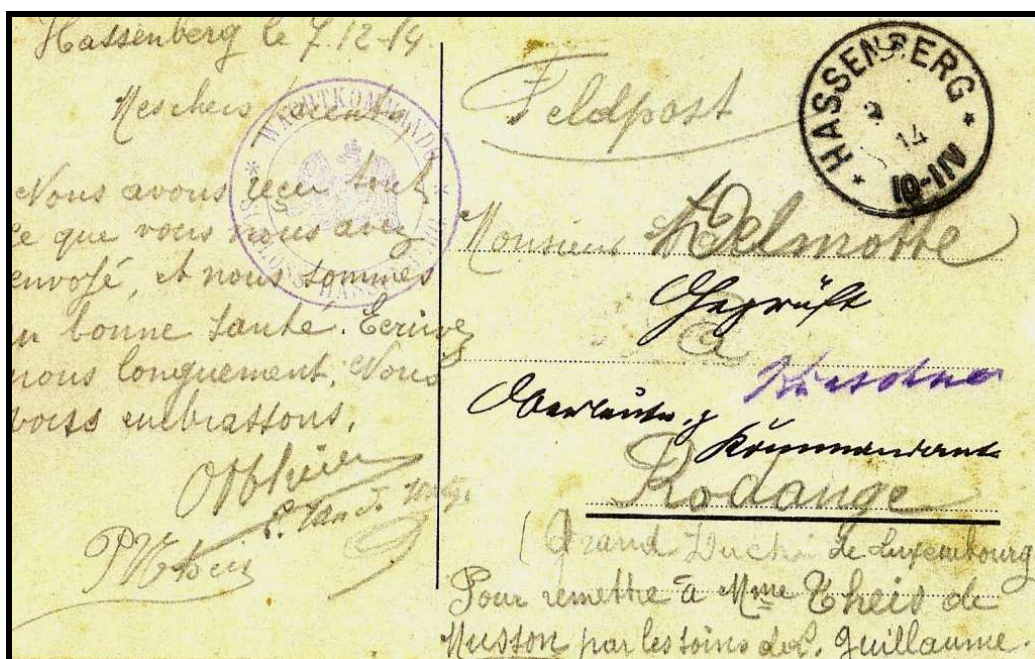 Hassenberg le 7.12-14.
Mes chers parents,
Nous avons reçu tout
ce que vous nous avez
envoyé, et nous sommes
en bonne santé. Ecrivez
nous longuement. Nous
vous embrassons.
P Theis
WACHTKOMMANDO
HASSENBERG
9
14
10-11V
Feldpost
Monsieur Delmotte
Geprüft
à
Oberleutn. u
Kommandant
Rodange
(Grand Duché de Luxembourg
Pour remettre à Mme Theis de
Musson par les soins de L. Guillaume.